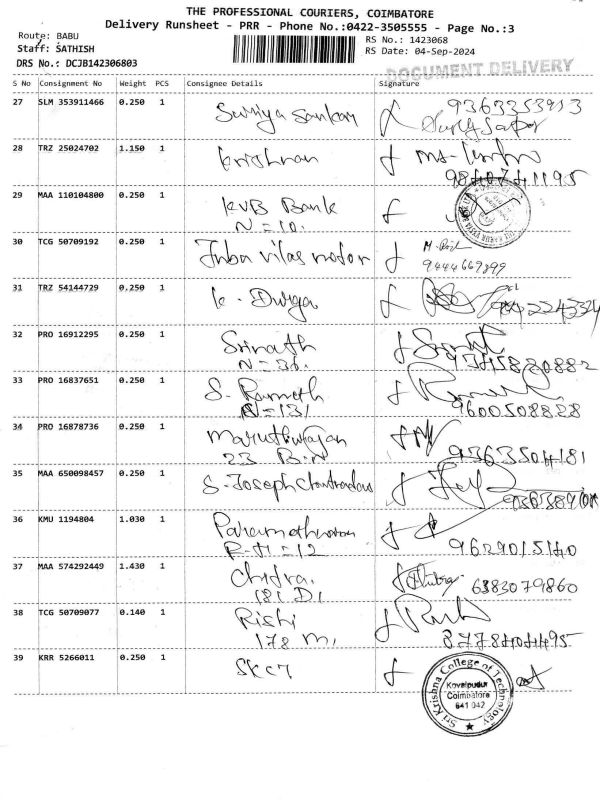 THE PROFESSIONAL COURIERS, COIMBATORE
Delivery Runsheet - PRR - Phone No.:0422-3505555 - Page No.:3
Route: BABU
Staff: SATHISH
DRS No.: DCJB142306803
RS No.: 1423068
RS Date: 04-Sep-2024
DOCUMENT DELIVERY
S No Consignment No Weight PCS Consignee Details Signature
27 SLM 353911466 0.250 1 Suriya Sankar 9363353913
28 TRZ 25024702 1.150 1 Krishnan
9840741195
29 MAA 110104800 0.250 1 KVB Bank
N=10.
30 TCG 50709192 0.250 1 vilas motor
9444669899
31 TRZ 54144729 0.250 1 K. Durga
32 PRO 16912295 0.250 1 Srinath
N=30. 9345880882
33 PRO 16837651 0.250 1 S.
N=131 9600508828
34 PRO 16878736 0.250 1
23 B.N 9363504181
35 MAA 650098457 0.250 1 S. Joseph
36 KMU 1194804 1.030 1
R-H=12 9629015140
37 MAA 574292449 1.430 1 Chitra. 6383079860
181 D1
38 TCG 50709077 0.140 1 Rishi
178 M, 8778404495
39 KRR 5266011 0.250 1 SKCT
Sri Krishna College of Technology
Kovaipudur
Coimbatore
641 042